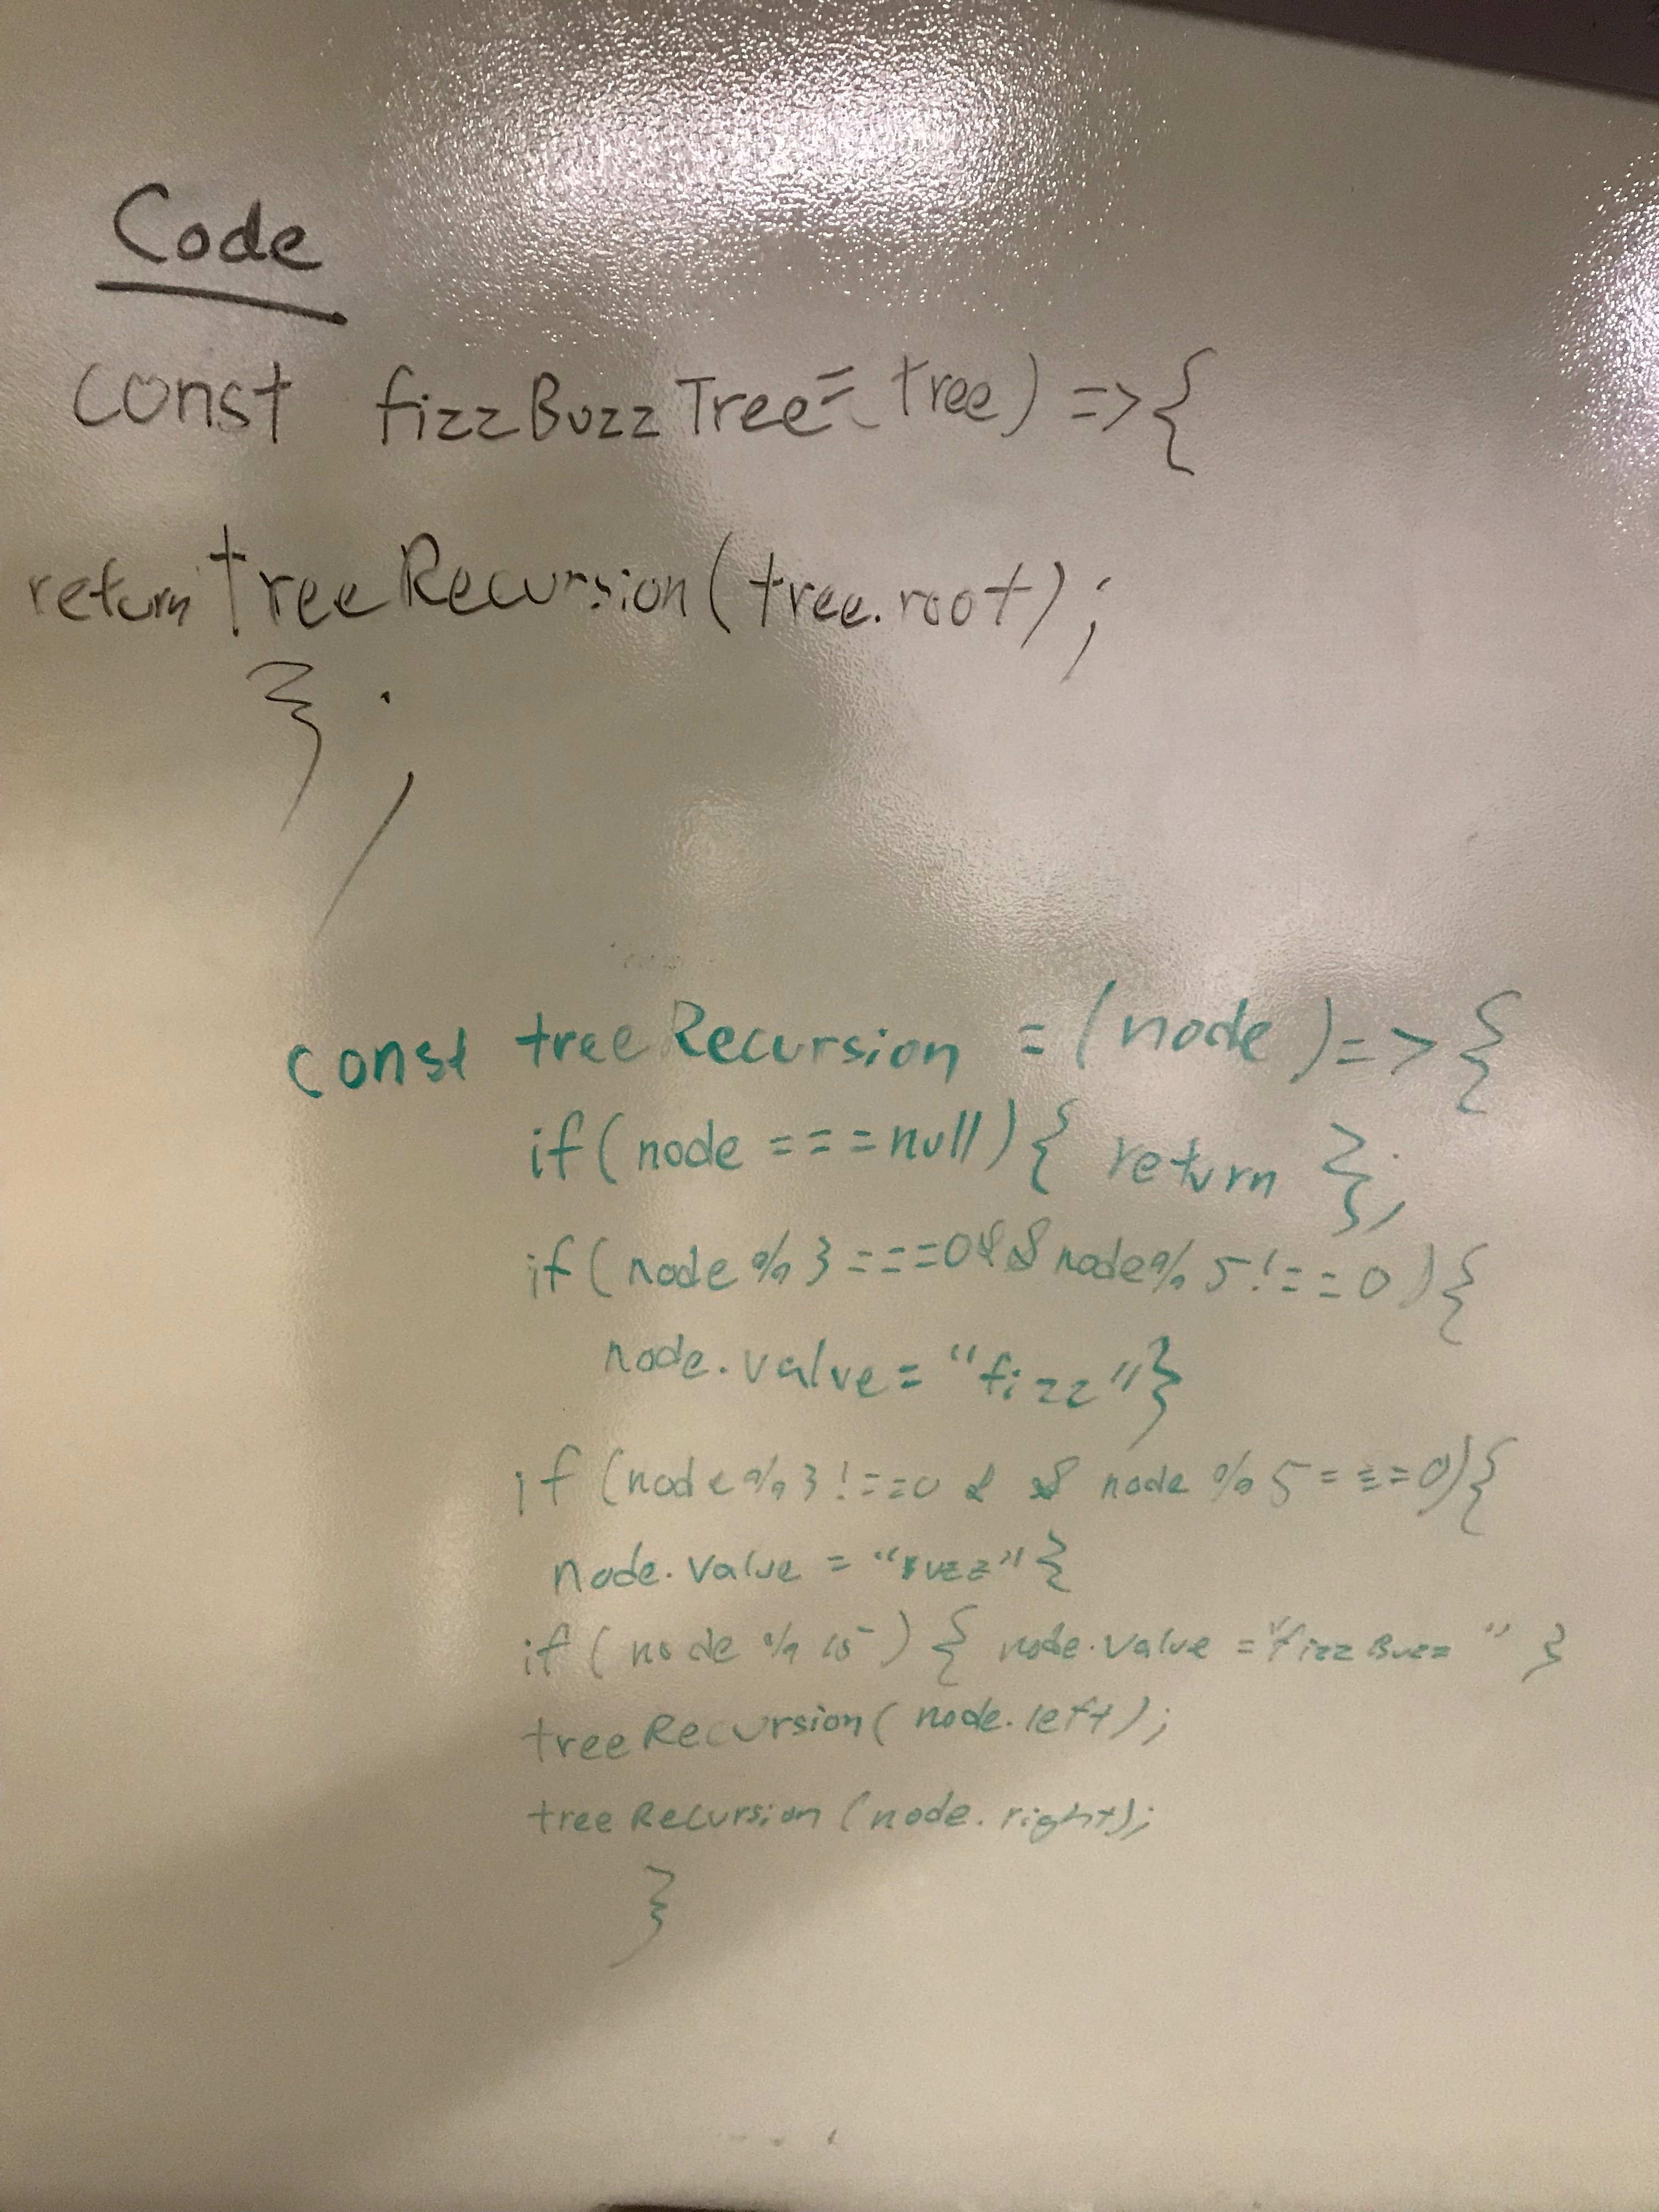 Code
const fizzBuzzTree = (tree) => {
return treeRecursion(tree.root);
};
const treeRecursion = (node) => {
if (node === null) { return };
if (node % 3 === 0 && node % 5 !== 0) {
node.value = "fizz" }
if (node % 3 !== 0 && node % 5 === 0) {
node.value = "Buzz" }
if (node % 15) { node.value = "fizzBuzz" }
treeRecursion(node.left);
treeRecursion(node.right);
}